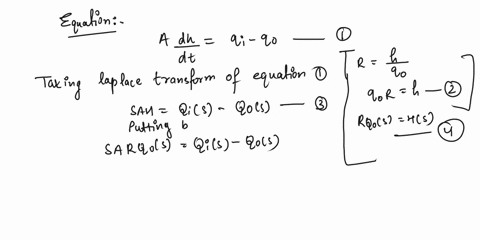 Equation:-
A dh/dt = qi - qo —— ①
Taking laplace transform of equation ①
SAH = Qi(s) - Qo(s) —— ③
Putting b
SARQo(s) = Qi(s) - Qo(s)
R = h/qo
qoR = h — ②
RQo(s) = H(s)
—— ④